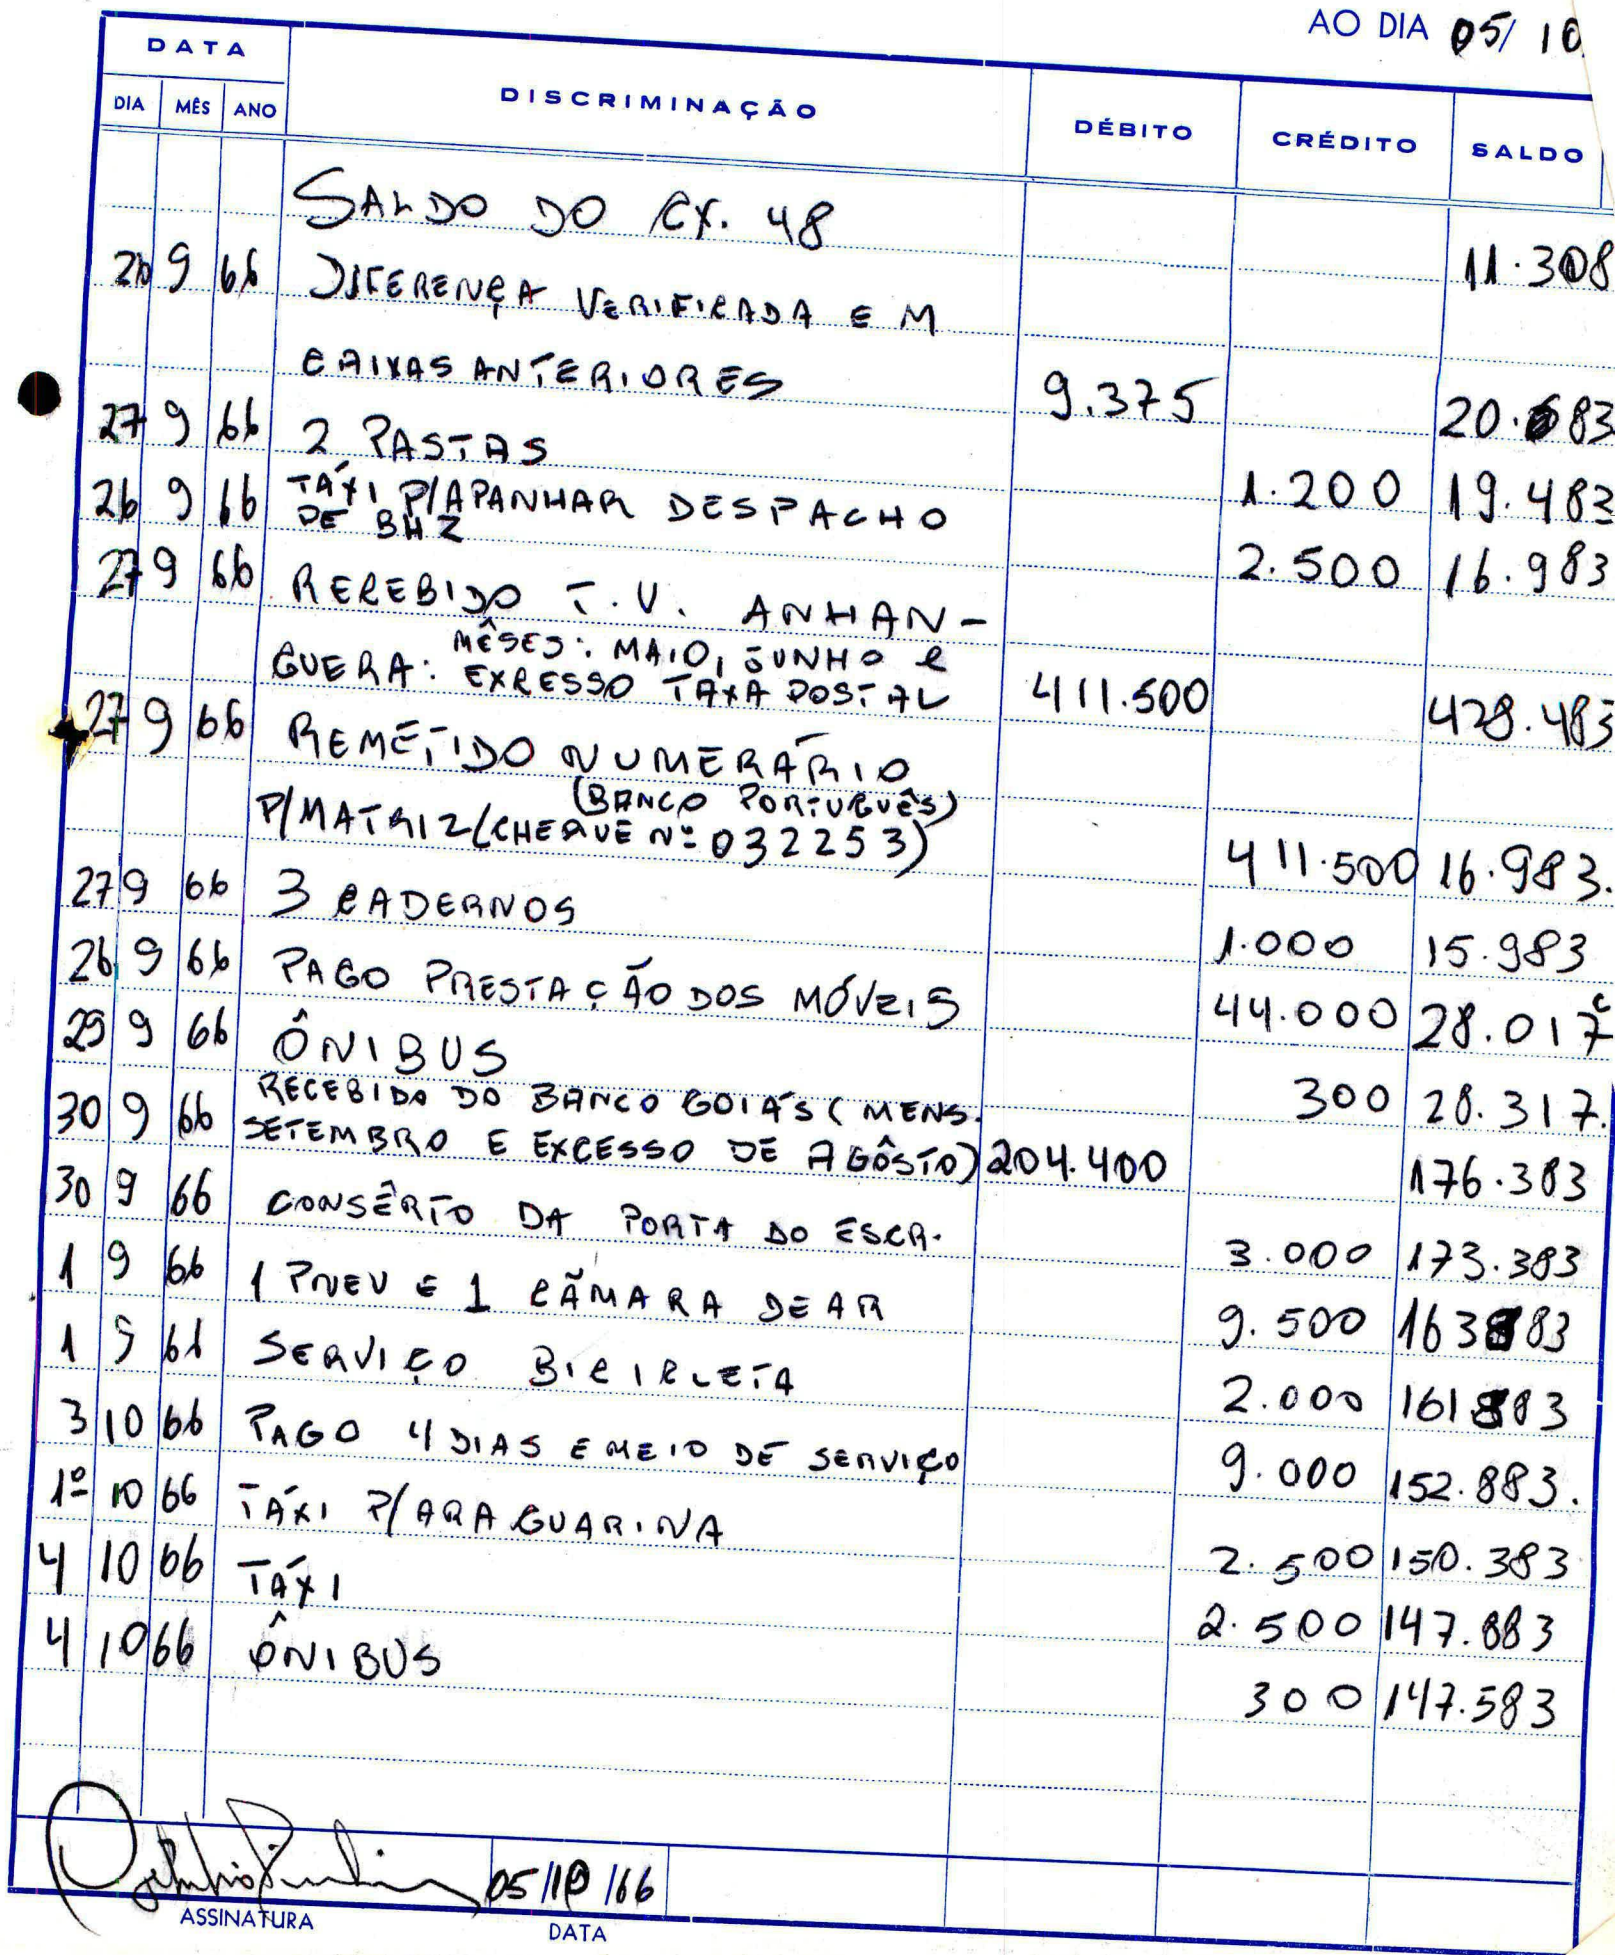 AO DIA 05/10
DATA
DIA MÊS ANO DISCRIMINAÇÃO DÉBITO CRÉDITO SALDO
SALDO DO CX. 48 11.308
26 9 66 DIFERENÇA VERIFICADA EM
CAIXAS ANTERIORES 9.375 20.683
27 9 66 2 PASTAS 1.200 19.483
26 9 66 TÁXI P/APANHAR DESPACHO 2.500 16.983
DE BHZ
27 9 66 RECEBIDO T.V. ANHAN-
MÊSES: MAIO, JUNHO e
GUERA: EXCESSO TAXA POSTAL 411.500 428.483
27 9 66 REMETIDO NUMERÁRIO
(BANCO PORTUGUÊS)
P/MATRIZ (CHEQUE Nº 032253) 411.500 16.983.
27 9 66 3 CADERNOS 1.000 15.983
26 9 66 PAGO PRESTAÇÃO DOS MÓVEIS 44.000 28.017 c
29 9 66 ÔNIBUS 300 28.317.
30 9 66 RECEBIDO DO BANCO GOIÁS (MENS.
SETEMBRO E EXCESSO DE AGÔSTO) 204.400 176.383
30 9 66 CONSÊRTO DA PORTA DO ESCR. 3.000 173.383
1 9 66 1 PNEU E 1 CÃMARA DE AR 9.500 163883
1 9 66 SERVIÇO BICICLETA 2.000 161883
3 10 66 PAGO 4 DIAS E MEIO DE SERVIÇO 9.000 152.883.
1º 10 66 TÁXI P/ARAGUARINA 2.500 150.383
4 10 66 TÁXI 2.500 147.883
4 10 66 ÔNIBUS 300 147.583
05/10/66
ASSINATURA DATA